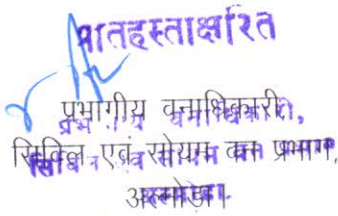 प्रतिहस्ताक्षरित
प्रभागीय वनाधिकारी,
सिविल एवं सोयम वन प्रभाग,
अल्मोड़ा।